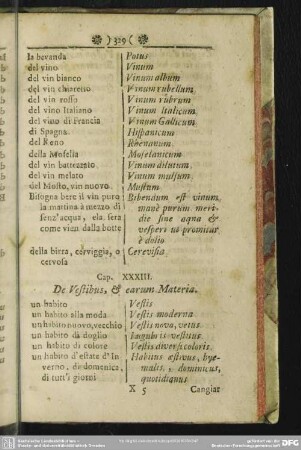 ) 329 (
la bevanda Potus
del vino Vinum
del vin bianco Vinum album
del vin chiaretto Vinum rubellum
del vin rosso Vinum rubrum
del vino Italiano Vinum Italicum
del vino di Francia Vinum Gallicum
di Spagna Hispanicum
del Reno Rhenanum
della Mosella Mosellanicum
del vin battezzato Vinum dilutum
del vin melato Vinum mulsum
del Mosto, vin nuovo Mustum
Bisogna bere il vin puro Bibendum est vinum
la mattina à mezzo dì manè purum meri-
senz' acqua, e la sera die sine aqua &
come vien dalla botte vesperi ut promitur
è dolio
della birra, cerviggia, o Cerevisia
cervosa
Cap. XXXIII.
De Vestibus, & earum Materia.
un habito Vestis
un habito alla moda Vestis moderna
un habito nuovo, vecchio Vestis nova, vetus
un habito da doglio lugubris vestitus
un habito di colore Vestis diversicoloris
un habito d'estate d'In- Habitus estivus, hye-
verno, di domenica, malis, dominicus,
di tutt'i giorni quotidianus
X 5 Cangiar